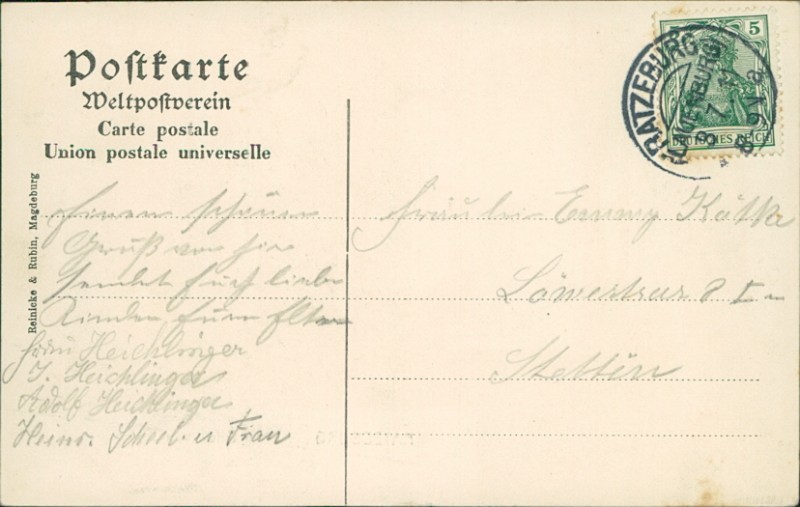 Postkarte
Weltpostverein
Carte postale
Union postale universelle
Reinicke & Rubin, Magdeburg
5 5
DEUTSCHES REICH
RATZEBURG
(LAUENBURG)
8 7
8-9V
Einen schönen
Gruß von hier
sendet Euch liebe
Kinder Eure Eltern
Frau Heichlinger
J. Heichlinger
Adolf Heichlinger
Heinr. Scheel u Frau
Fräulein Emmy
Stettin